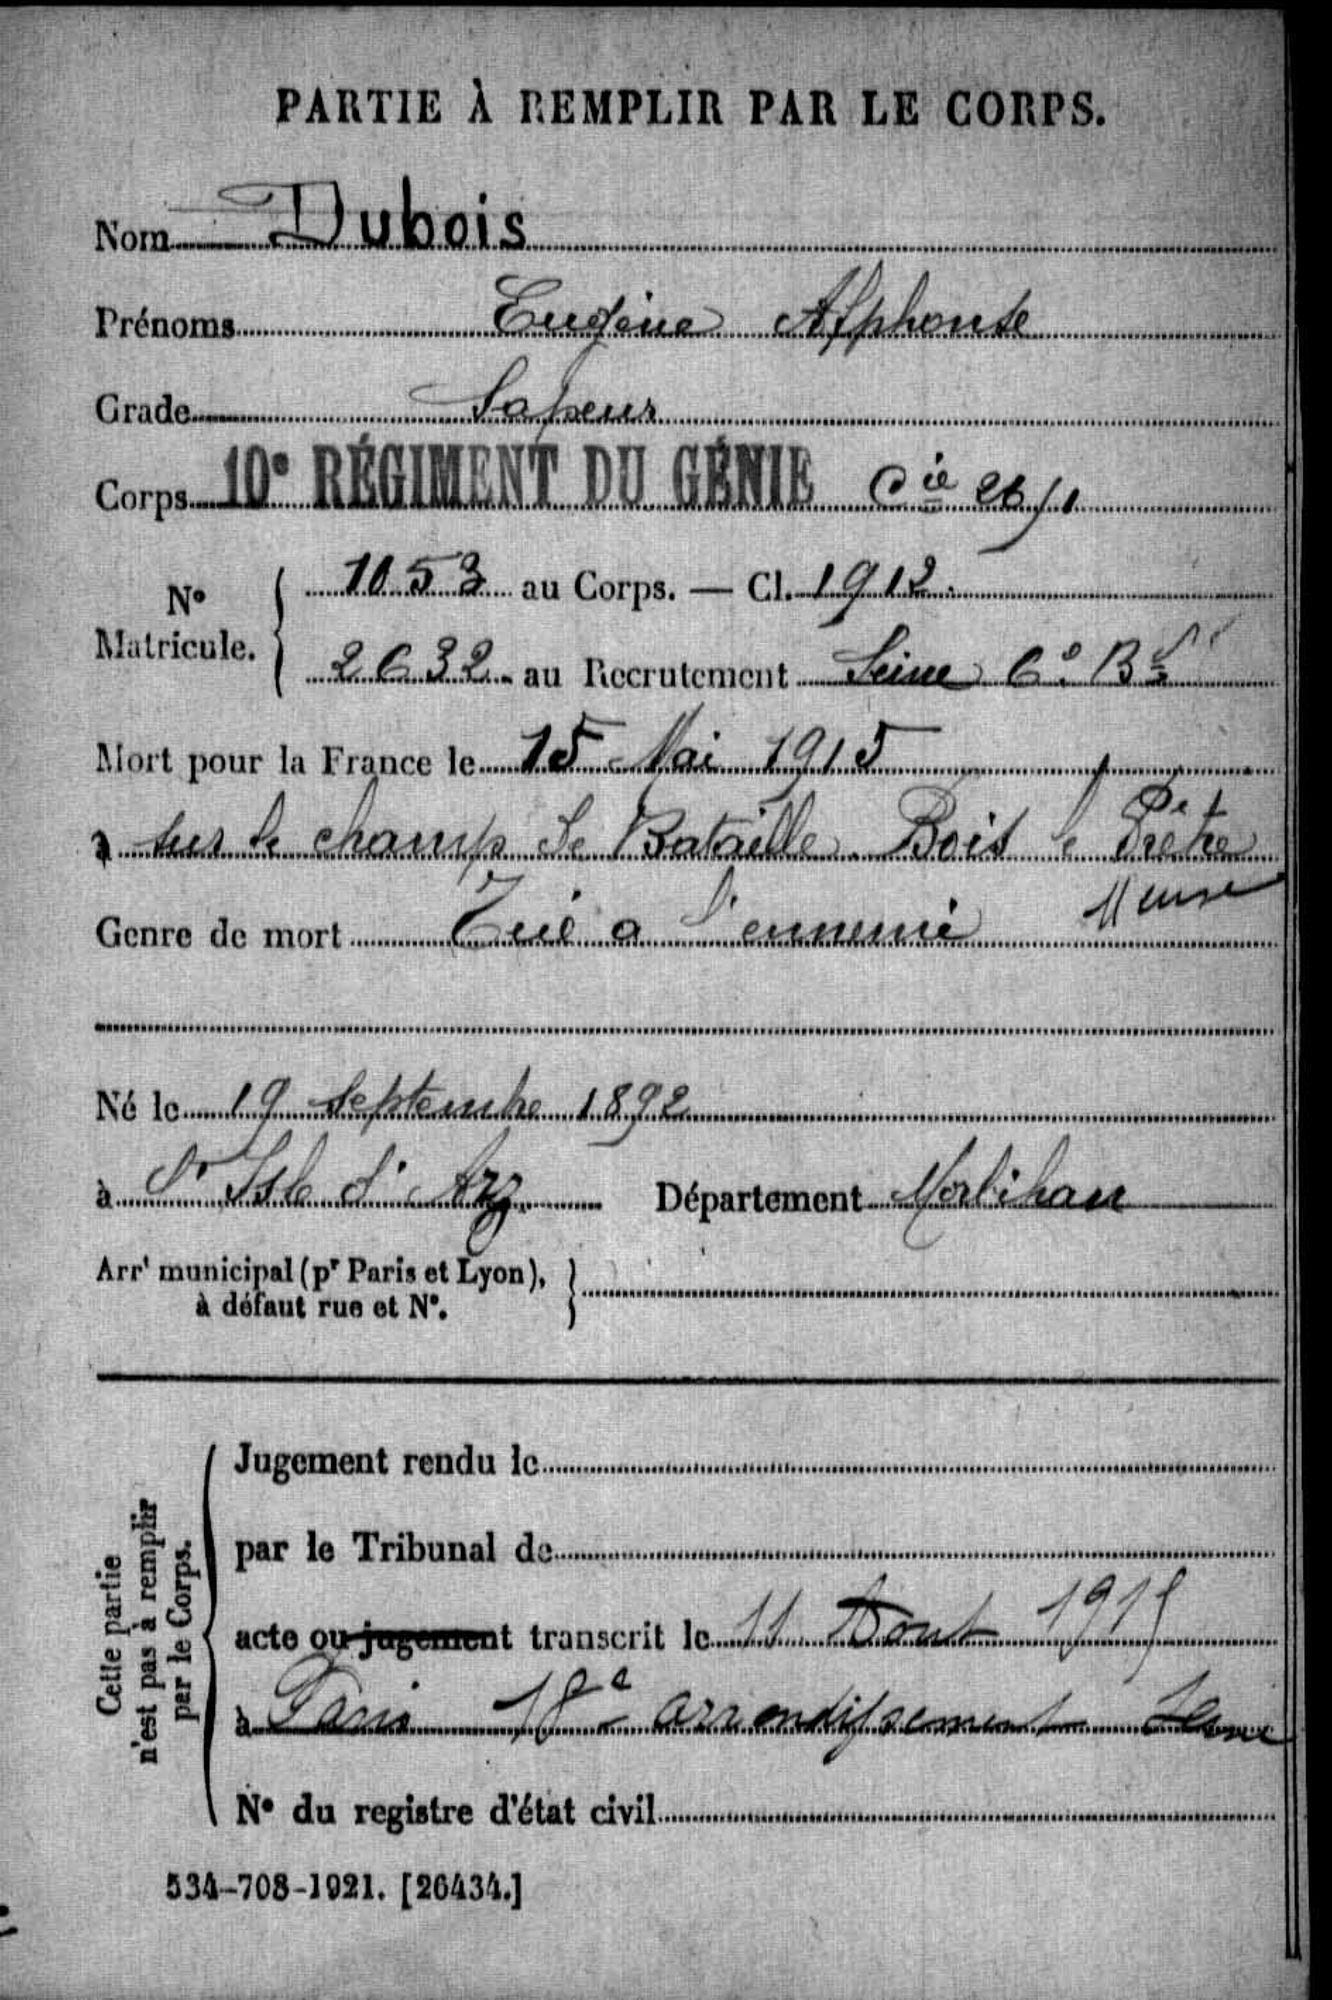 PARTIE À REMPLIR PAR LE CORPS.
Nom Dubois
Prénoms Eugène Alphonse
Grade Sapeur
Corps 10e RÉGIMENT DU GÉNIE Cie 26/1
No Matricule. 1053 au Corps. — Cl. 1912.
2632 au Recrutement Seine 6e Bau
Mort pour la France le 15 Mai 1915
à sur le champ de Bataille. Bois le Prêtre
Meuse
Genre de mort Tué a l'ennemi
Né le 19 Septembre 1892
à l' Isle d' Arz. Département Morbihan
Arrt municipal (pr Paris et Lyon),
à défaut rue et No.
Cette partie
n'est pas à remplir
par le Corps.
Jugement rendu le
par le Tribunal de
acte ou jugement transcrit le 11 Aout 1915
à Paris 18e arrondissement Seine
No du registre d'état civil
534-708-1921. [26434.]